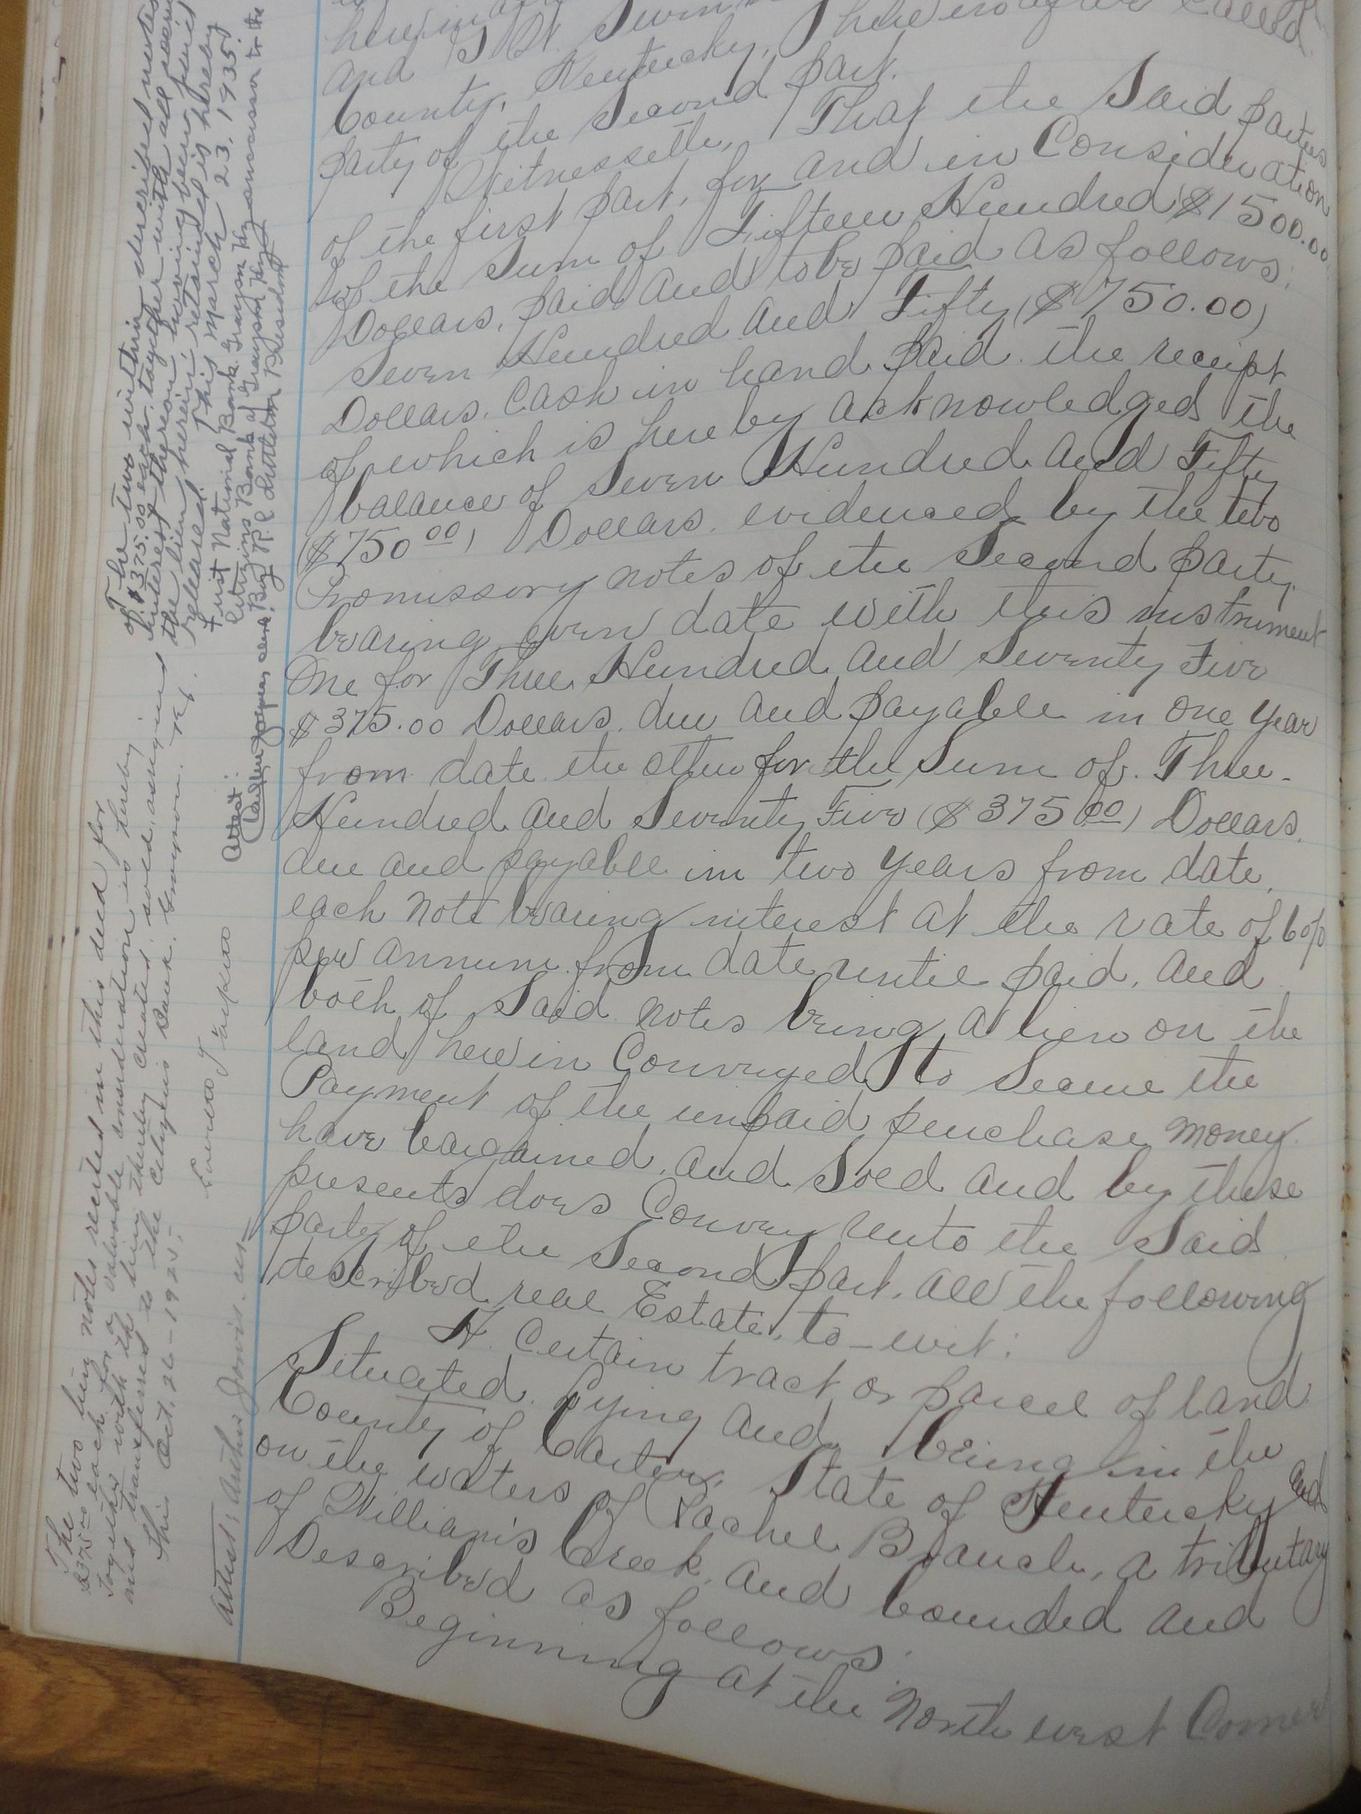 herein
and
County, Kentucky, hereinafter Called
party of the Second part.
Witnesseth, That the Said parties
of the first part, for and in Consideration
of the Sum of Fifteen Hundred $1500.00
Dollars, paid and to be paid as follows:
Seven Hundred and Fifty ($750.00)
Dollars, Cash in hand paid. the receipt
of which is hereby acknowledged the
balance of Seven Hundred and Fifty
($750.00) Dollars. evidenced by the two
Promissory notes of the Second party
bearing even date with this instrument
One for Three Hundred and Seventy Five
$375.00 Dollars. due and payable in one year
from date the other for the Sum of. Three-
Hundred and Seventy Five ($375.00) Dollars.
due and payable in two years from date,
each note bearing interest at the rate of 6%
per annum from date until paid, and
both of Said notes being a lien on the
land herein Conveyed to Secure the
Payment of the unpaid purchase money.
have bargained, and Sold and by these
presents does Convey unto the Said
party of the Second part, all the following
described real Estate, to-wit:
A Certain tract or parcel of land
Situated, Lying and being in the
County of Carter, State of Kentucky and
on the waters of Rachel Branch, a tributary
of William's Creek, and bounded and
Described as follows:
Beginning at the North west Corner
The two within described notes
of $375.00 each, together with all accrued
interest thereon, having been paid
the lien herein retained is hereby
released. This March 23, 1935.
First National Bank, Grayson Ky successor to the
Citizens Bank of Grayson Ky
By R. C. Littleton President
Attest:
The two lien notes recited in this deed for
$375.00 each for a valuable consideration is hereby
together with the lien thereby created, sold, assigned
and transferred to the Citizens Bank, Grayson. Ky.
This Oct. 26-1925.
Attest: Arthur